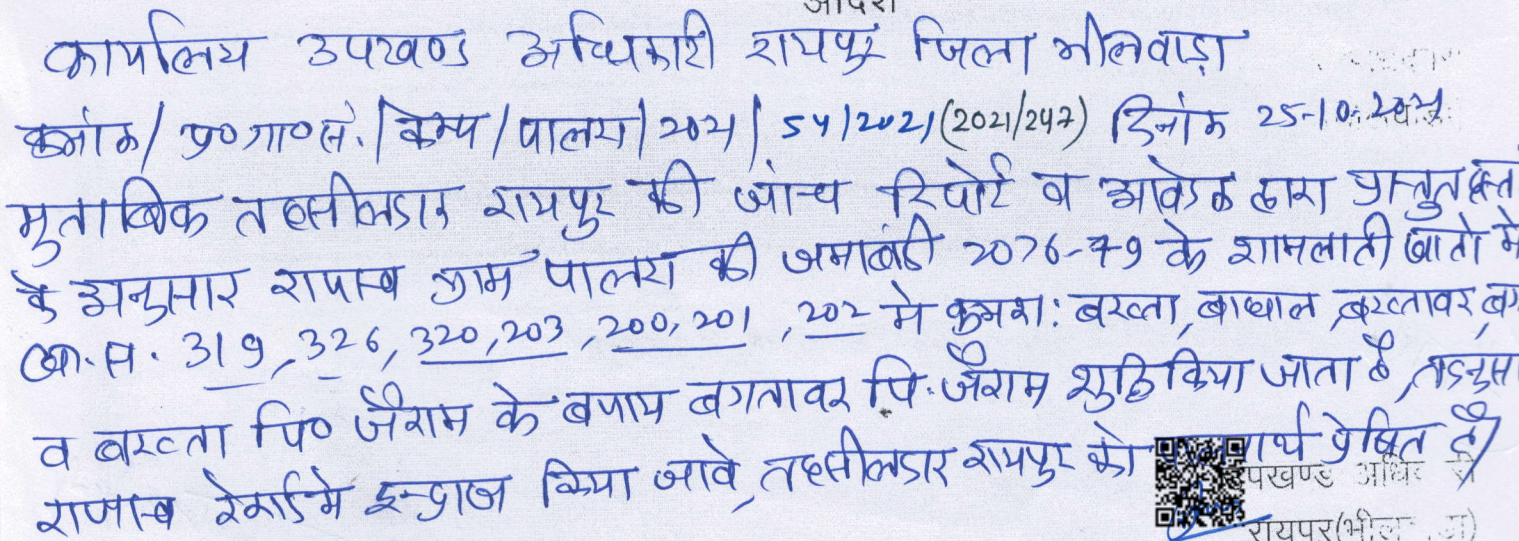 आदेश
कार्यालय उपखण्ड अधिकारी रायपुर जिला भीलवाड़ा
क्रमांक/ प्र०गा०सं./केम्प/पालरा/2021/ 54/2021(2021/247) दिनांक 25-10-2021
मुताबिक तहसीलदार रायपुर की जांच रिपोर्ट व आवेदक द्वारा प्रस्तुत
के अनुसार राजस्व ग्राम पालरा की जमाबंदी 2076-79 के शामलाती खातो मे
खा.स. 319, 326, 320, 203, 200, 201, 202 मे क्रमश: बख्ता, बाघाल, बख्तावर,
व बख्ता पि० जैराम के बजाय बगतावर पि. जैराम शुद्धि किया जाता है,
राजस्व रेकार्ड मे इन्द्राज किया जावे, तहसीलदार रायपुर को प्रेषित है
उपखण्ड
रायपुर